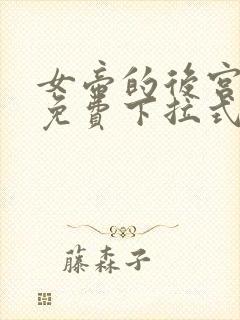 女帝的後宮
免費下拉式
藤森子